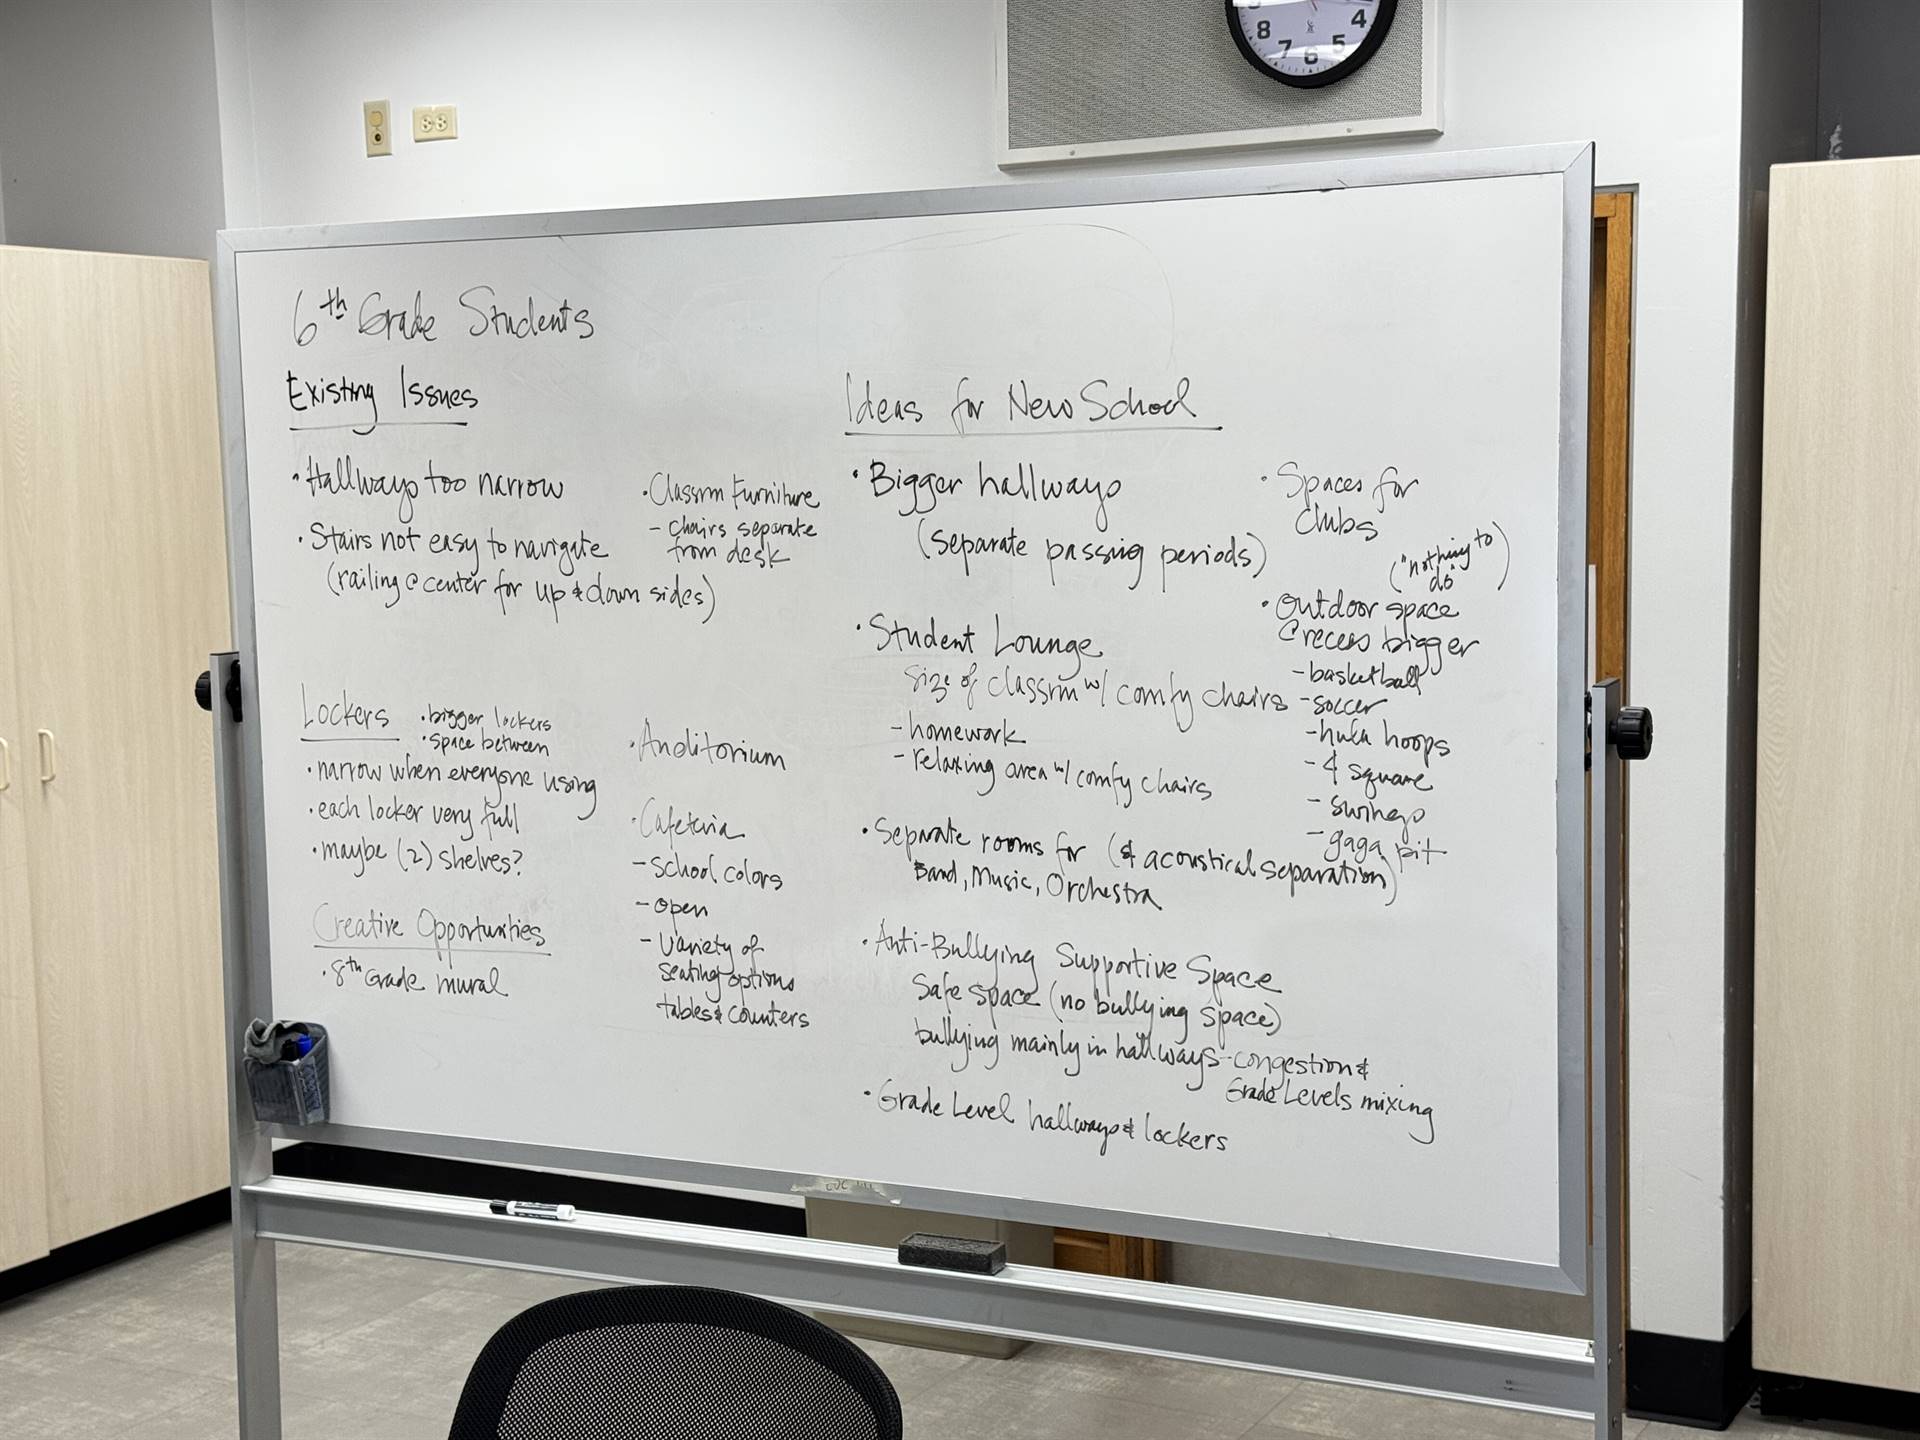 8
7
6
5
4
6th Grade Students
Existing Issues
• Hallways too narrow
• Stairs not easy to navigate
(railing @ center for up & down sides)
• Classrm Furniture
- chairs separate
from desk
Lockers
• bigger lockers
• space between
• narrow when everyone using
• each locker very full
• maybe (2) shelves?
Creative Opportunities
• 8th Grade mural
• Auditorium
• Cafeteria
- school colors
- open
- variety of
seating options
tables & counters
Ideas for New School
• Bigger hallways
(separate passing periods)
• Student Lounge
size of classrm w/ comfy chairs
- homework
- relaxing area w/ comfy chairs
• Separate rooms for (& acoustical separation)
Band, Music, Orchestra
• Anti-Bullying Supportive Space
Safe space (no bullying space)
bullying mainly in hallways - congestion &
Grade Levels mixing
• Grade Level hallways & lockers
• Spaces for
clubs
("nothing to
do")
• Outdoor space
@ recess bigger
- basketball
- soccer
- hula hoops
- 4 square
- swings
- gaga pit